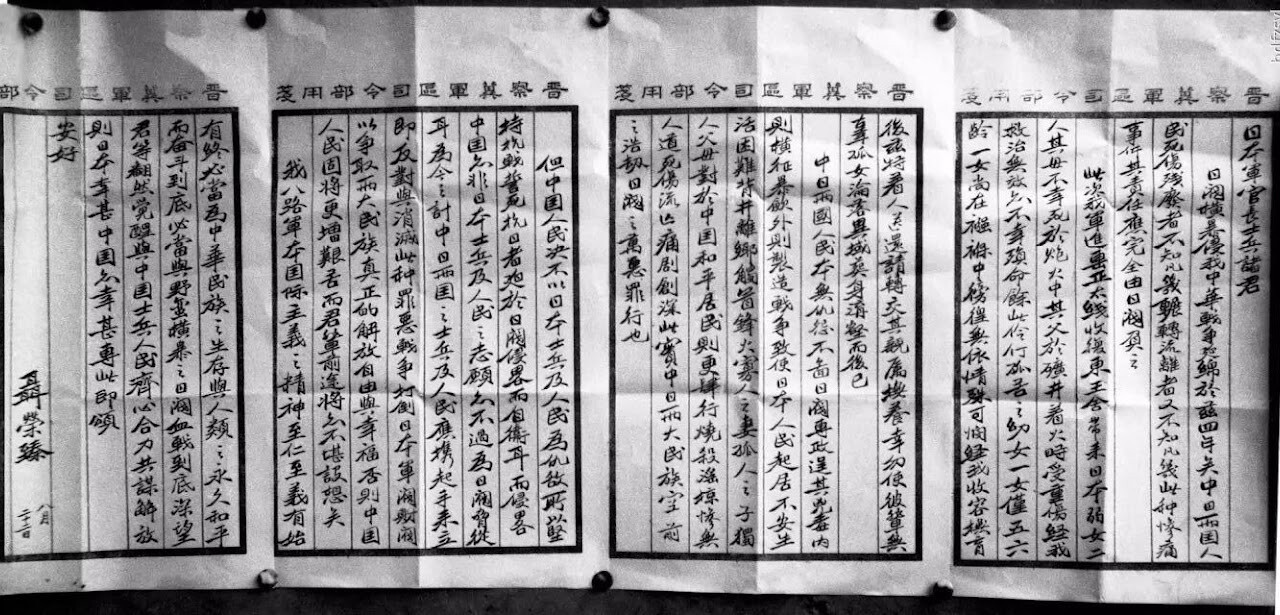 晉察冀軍區司令部用箋
日本軍官長士兵諸君
日閥橫暴侵我中華戰爭延綿於茲四年矣中日兩国人
民死傷殘廢者不知凡幾輾轉流離者又不知凡幾此種慘痛
事件其責任應完全由日閥負之
此次我軍進軍正太綫收復東王舍帶來日本弱女二
人其母不幸死於炮火中其父於礦井着火時受重傷經我
救治無效亦不幸殞命餘此伶仃孤苦之幼女一女僅五六
齡一女尚在襁褓中徬徨無依情殊可憫經我收容撫育
晉察冀軍區司令部用箋
後茲特着人送還請轉交其親屬撫養幸勿使彼輩無
辜孤女淪落異域葬身溝壑而後已
中日兩國人民本無仇怨不啚日閥專政逞其兇毒内
則橫征暴歛外則製造戰争致使日本人民起居不安生
活困難背井離鄉觸冒鋒火寡人之妻孤人之子獨
人父母對於中国和平居民則更肆行燒殺淫掠慘無
人道死傷流亡痛劇創深此實中日两大民族空前
之浩劫日閥之萬惡罪行也
晉察冀軍區司令部用箋
但中国人民决不以日本士兵及人民為仇敌所以堅
持抗戰誓死抗日者迫於日閥侵畧而自衞耳而侵畧
中国亦非日本士兵及人民之志願亦不過為日閥脅從
耳為今之計中日两国之士兵及人民應携起手来立
即反對與消滅此种罪惡戰争打倒日本軍閥财閥
以争取两大民族真正的解放自由與幸福否則中国
人民固將更增艱苦而君輩前途將亦不堪設想矣
我八路軍本国际主義之精神至仁至義有始
晉察冀軍區司令部
有終必當為中華民族之生存與人類之永久和平
而奋斗到底必當與野蛮橫暴之日閥血戰到底深望
君等翻然覺醒與中国士兵人民齊心合力共謀解放
則日本幸甚中国亦幸甚專此即頌
安好
聶榮臻
八月
二十二日